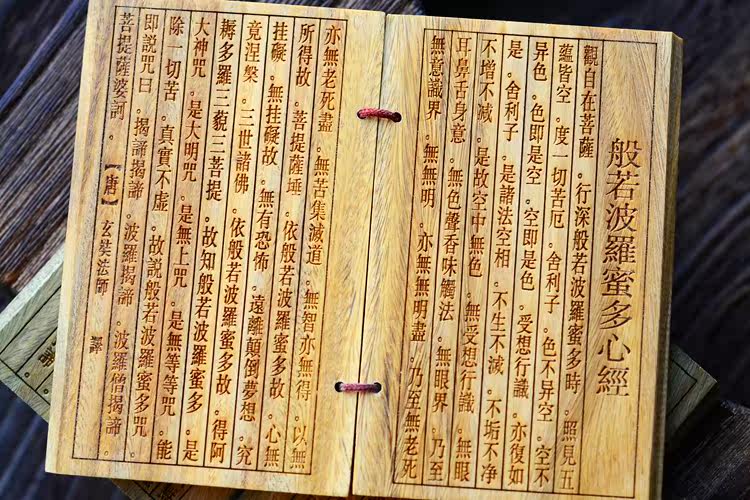 般若波羅蜜多心經
觀自在菩薩。行深般若波羅蜜多時。照見五
蘊皆空。度一切苦厄。舍利子。色不異空。空不
异色。色即是空。空即是色。受想行識。亦復如
是。舍利子。是諸法空相。不生不滅。不垢不净
不增不减。是故空中無色。無受想行識。無眼
耳鼻舌身意。無色聲香味觸法。無眼界。乃至
無意識界。無無明。亦無無明盡。乃至無老死
亦無老死盡。無苦集滅道。無智亦無得。以無
所得故。菩提薩埵。依般若波羅蜜多故。心無
挂礙。無挂礙故。無有恐怖。遠離顛倒夢想。究
竟涅槃。三世諸佛。依般若波羅蜜多故。得阿
耨多羅三藐三菩提。故知般若波羅蜜多。是
大神咒。是大明咒。是無上咒。是無等等咒。能
除一切苦。真實不虛。故說般若波羅蜜多咒
即說咒曰。揭諦揭諦。波羅揭諦。波羅僧揭諦。
菩提薩婆訶。【唐】玄奘法師 譯